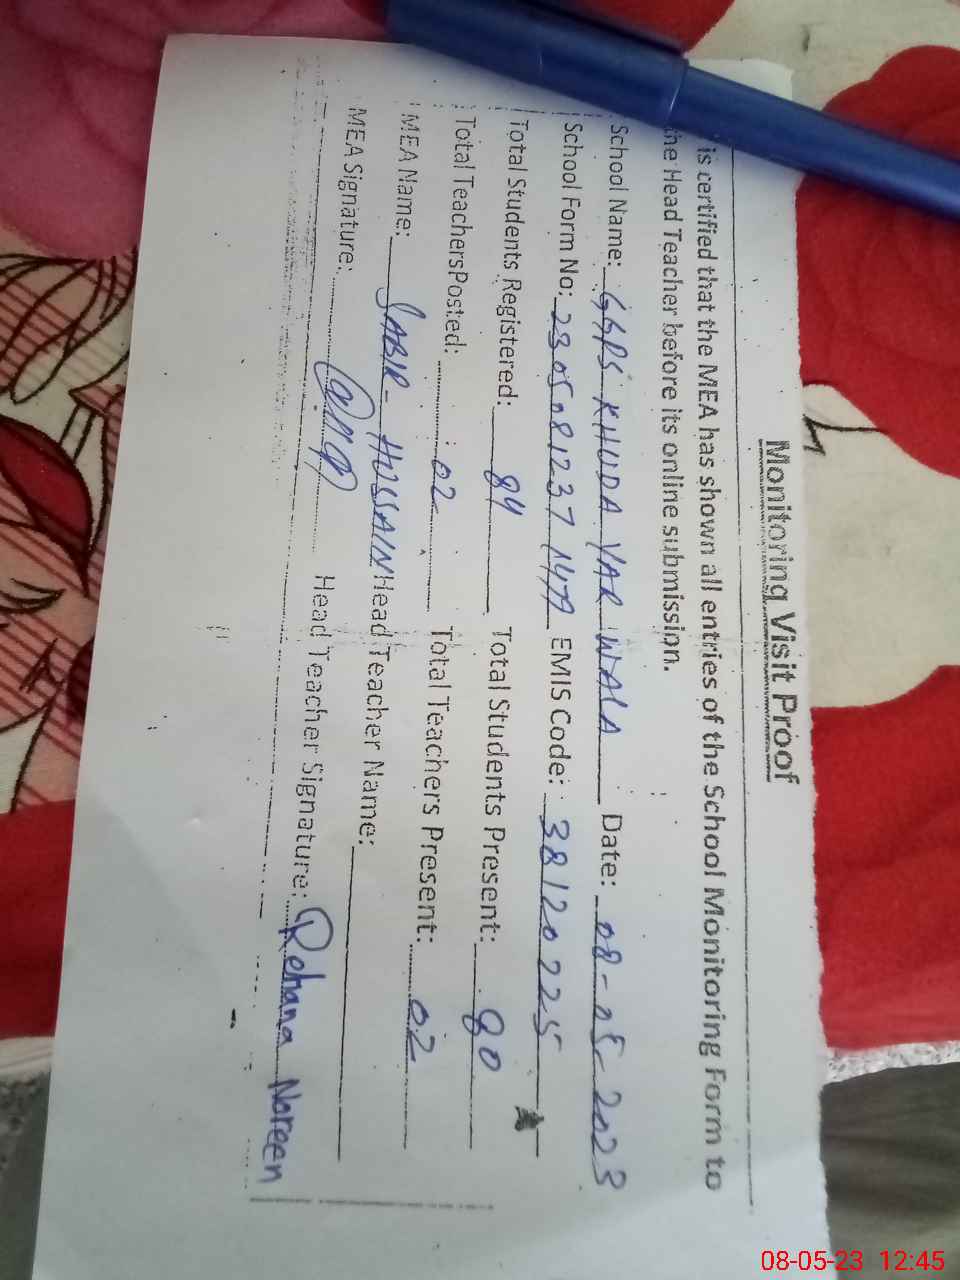 Monitoring Visit Proof
is certified that the MEA has shown all entries of the School Monitoring Form to
the Head Teacher before its online submission.
School Name: GGPS KHUDA YAR WALA Date: 08-05-2023
School Form No: 23050812371479 EMIS Code: 38120225
Total Students Registered: 84 Total Students Present: 80
Total TeachersPosted: 02 Total Teachers Present: 02
MEA Name: SABIR HUSSAIN Head Teacher Name:
MEA Signature: Head Teacher Signature: Rehana Noreen
08-05-23 12:45